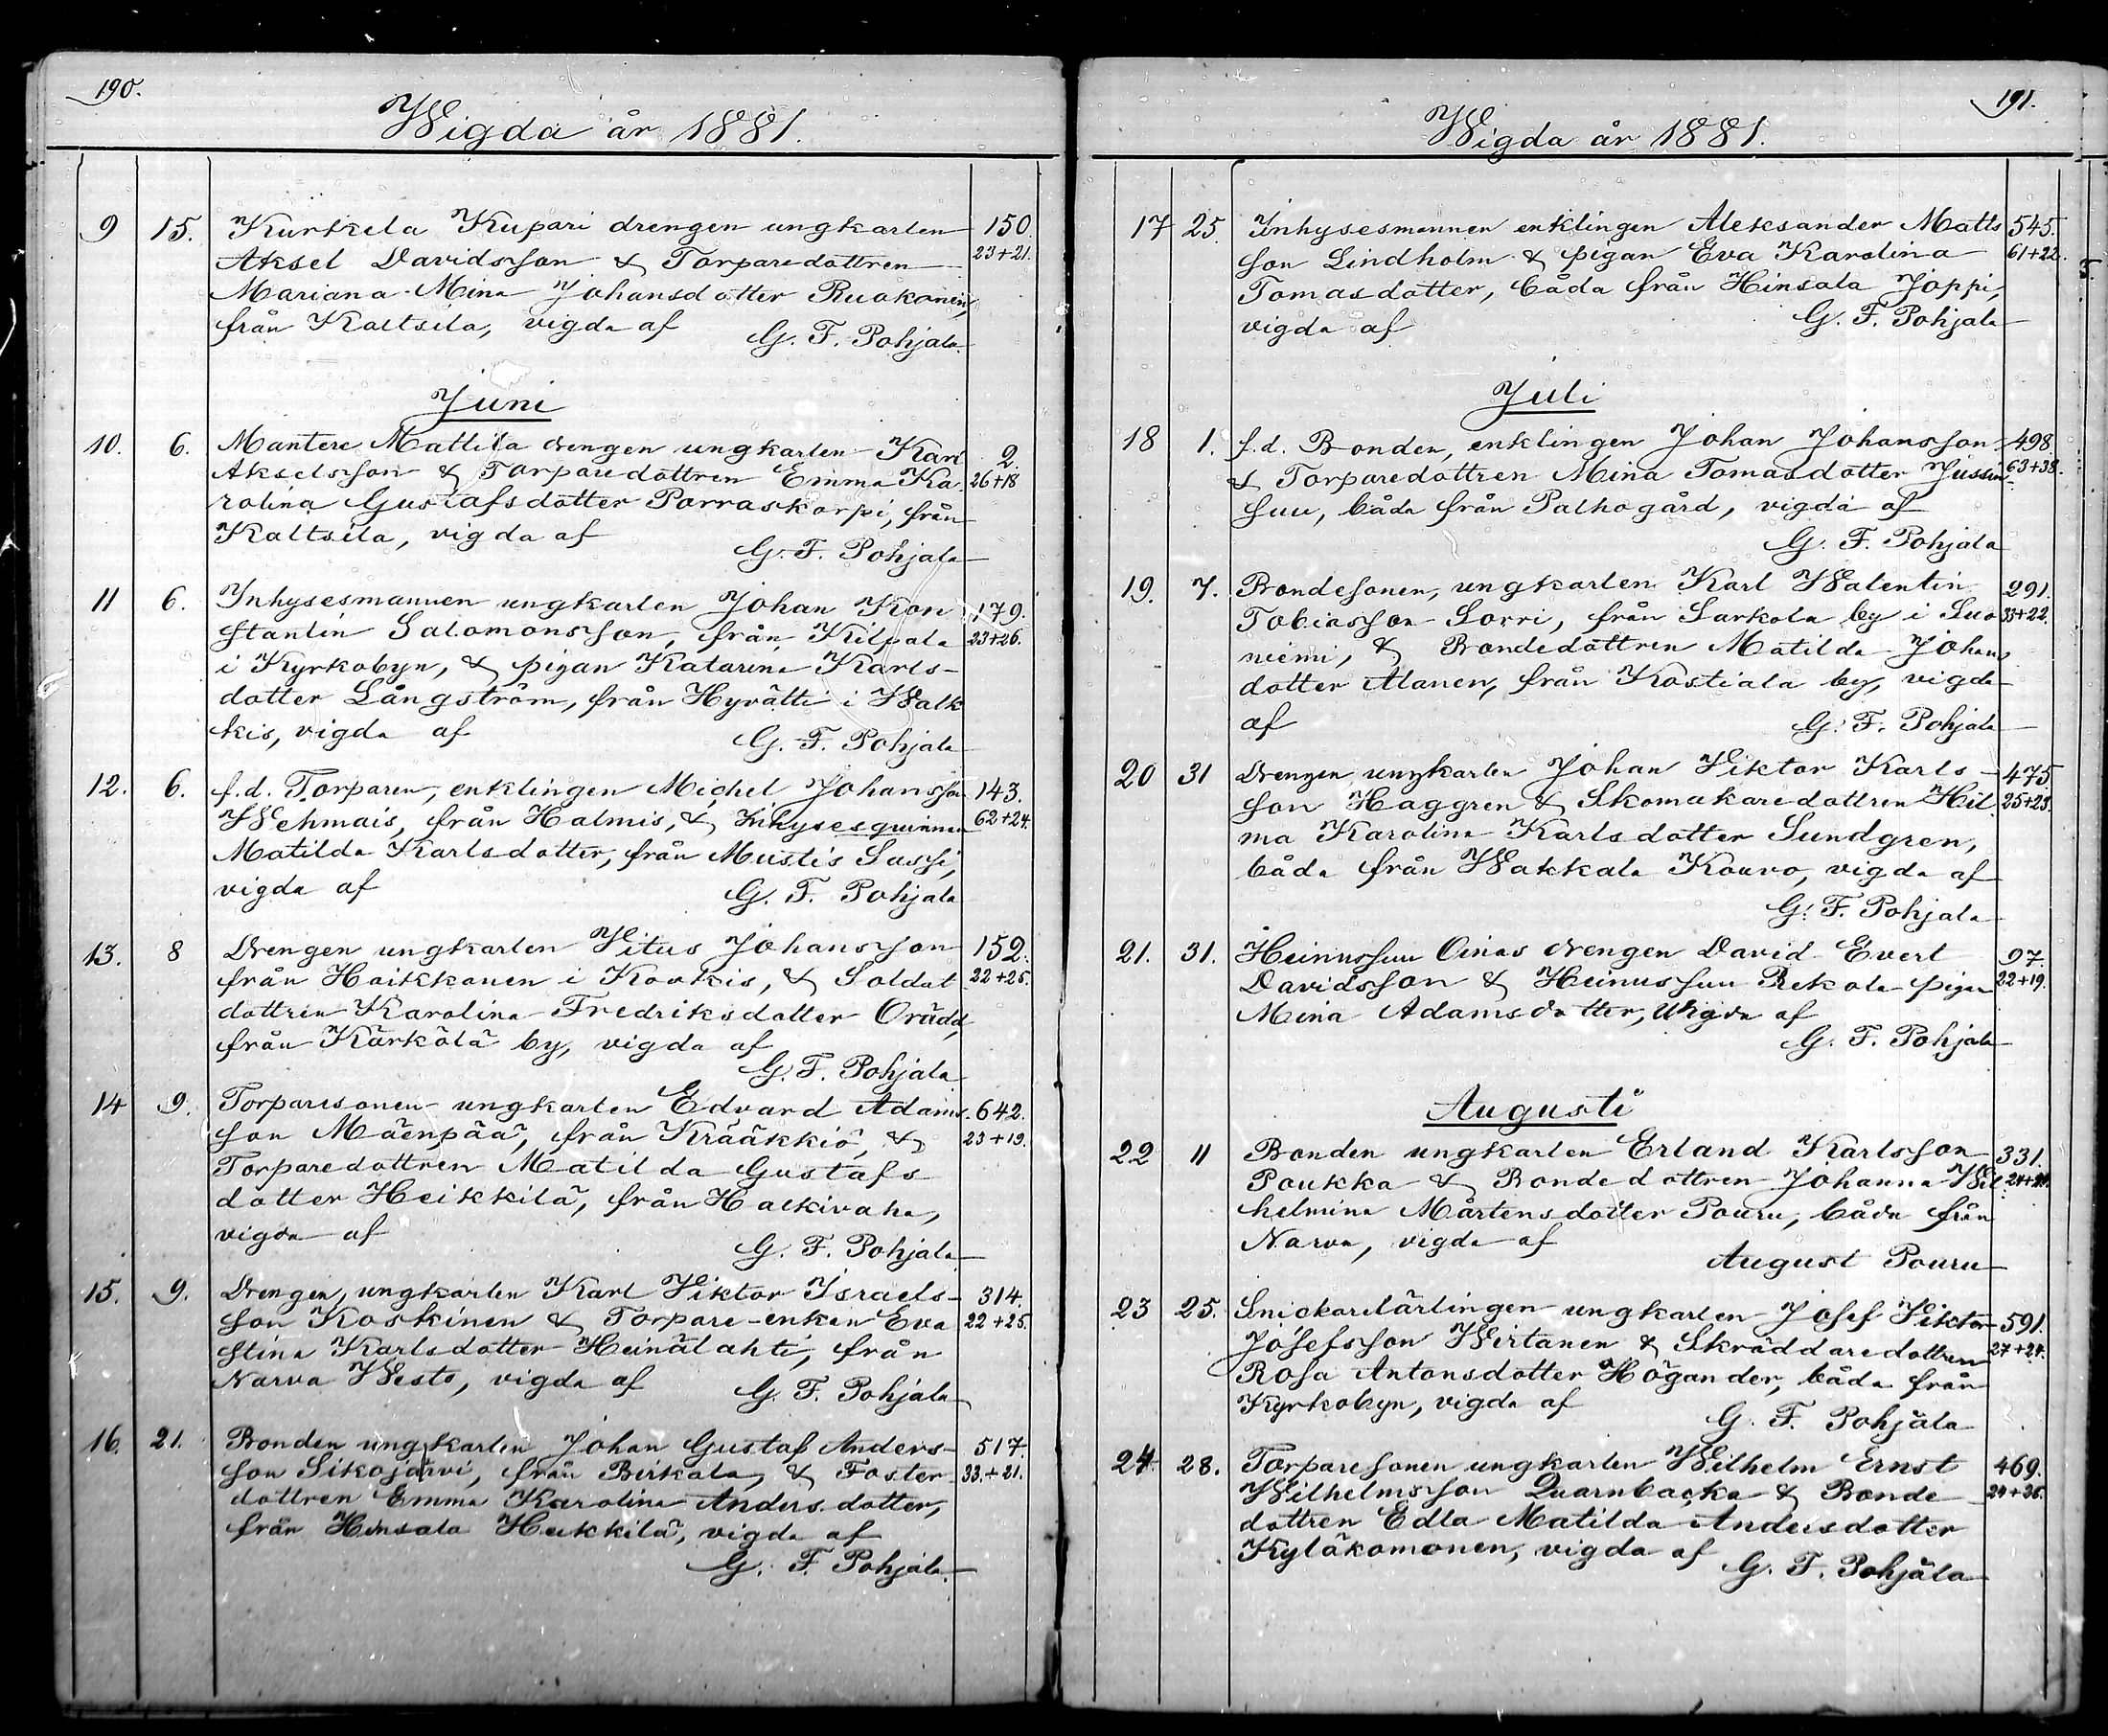 190.
Wigda år 1881.
9 15. Kurkela Kupari drengen ungkarlen 150.
Aksel Davidsson & Torparedottren 23+21.
Mariana Mina Johansdotter Ruokonen,
från Kaltsila, vigda af G. F. Pohjala.
Juni
10. 6. Mantere Mattila drengen ungkarlen Karl 2.
Akselsson & Torparedottren Emma Ka 26+18
rolina Gustafsdotter Porraskorpi, från
Kaltsila, vigda af
G. F. Pohjala
11 6. Inhysesmannen ungkarlen Johan Kon 179.
stantin Salomonsson, från Kilpala 23+26.
i Kyrkobyn, & pigan Katarina Karls-
dotter Långström, från Hyrätti i Walk
kis, vigda af G. F. Pohjala
12. 6. f.d. Torparen, enklingen Michel Johansson 143.
Wehmais, från Halmis, & Inhysesquinnan 62+24.
Matilda Karlsdotter, från Mustis Sassi,
vigda af G. F. Pohjala
13. 8 Drengen ungkarlen Vitus Johansson 152.
från Hoikkanen i Koukis, & Soldat 22+25.
dottren Karolina Fredriksdotter Orädd,
från Kärkölä by, vigda af
G. F. Pohjala
14 9. Torparesonen ungkarlen Edvard Adams 642.
son Mäenpää, från Krääkkiö, & 23+19.
Torparedottren Matilda Gustafs
dotter Heikkilä, från Halkivaha,
vigda af
G. F. Pohjala
15. 9. Drengen, ungkarlen Karl Viktor Israels- 314.
son Koskinen & Torpare-enkan Eva 22+25.
Stina Karlsdotter Heinälahti, från
Narva Westo, vigda af G. F. Pohjala
16. 21. Bonden ungkarlen Johan Gustaf Anders- 517.
son Sikojärvi, från Birkala, & Foster 33.+21.
dottren Emma Karolina Anders dotter,
från Hinsala Heikkilä, vigda af
G. F. Pohjala.
191.
Wigda år 1881.
17 25. Inhysesmannen enklingen Aleksander Matts 545.
son Lindholm & pigan Eva Karolina 61+22.
Tomasdotter, båda från Hinsala Joppi,
vigda af G. F. Pohjala
Juli
18 1. f.d. Bonden, enklingen Johan Johansson 498
& Torparedottren Mina Tomasdotter Jussin 63+38.
suu, båda från Palhogård, vigda af
G. F. Pohjala
19. 7. Bondesonen, ungkarlen Karl Walentin 291.
Tobiasson Sorri, från Sarkola by i Suo 33+22.
niemi, & Bondedottren Matilda Johans
dotter Alanen, från Kostiala by, vigda
af G. F. Pohjala
20 31 Drengen ungkarlen Johan Viktor Karls- 475
son Haggren & Skomakaredottren Hil 25+23.
ma Karolina Karlsdotter Sundgren,
båda från Wakkala Kouvo, vigda af
G. F. Pohjala
21. 31. Heinussuu Oinas drengen David Evert 97.
Davidsson & Heinussuu Rekola pigan 22+19.
Mina Adamsdotter, vigda af
G. F. Pohjala
Augusti
22 11 Bonden ungkarlen Erland Karlsson 331.
Poukka & Bondedottren Johanna Wil
helmina Mårtensdotter Pouru, båda från
Narva, vigda af
August Pouru
23 25. Snickarelärlingen ungkarlen Josef Viktor 591.
Josefsson Wirtanen & Skräddaredottren 27+24.
Rosa Antonsdotter Högander, båda från
Kyrkobyn, vigda af
G. F. Pohjala
24 28. Torparesonen ungkarlen Wilhelm Ernst 469.
Wilhelmsson Quarnbacka & Bonde
dottren Edla Matilda Andersdotter
Kyläkomonen, vigda af G. F. Pohjala